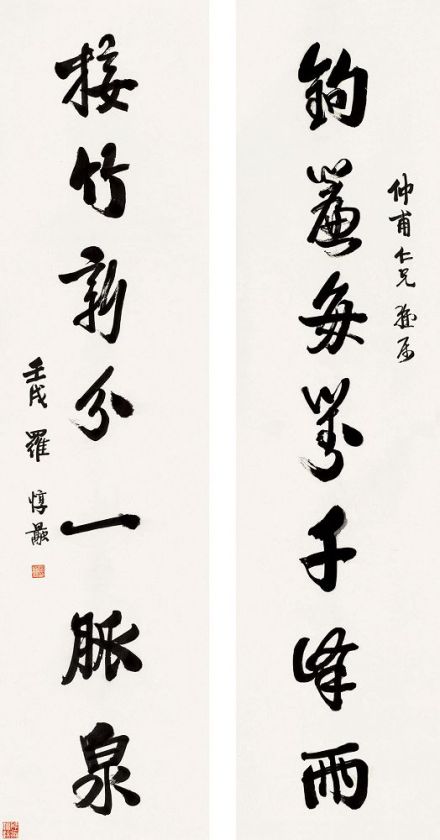 仲甫仁兄雅属
鉤簾每對千峰雨
接竹新分一脈泉
壬戌 羅惇㬊